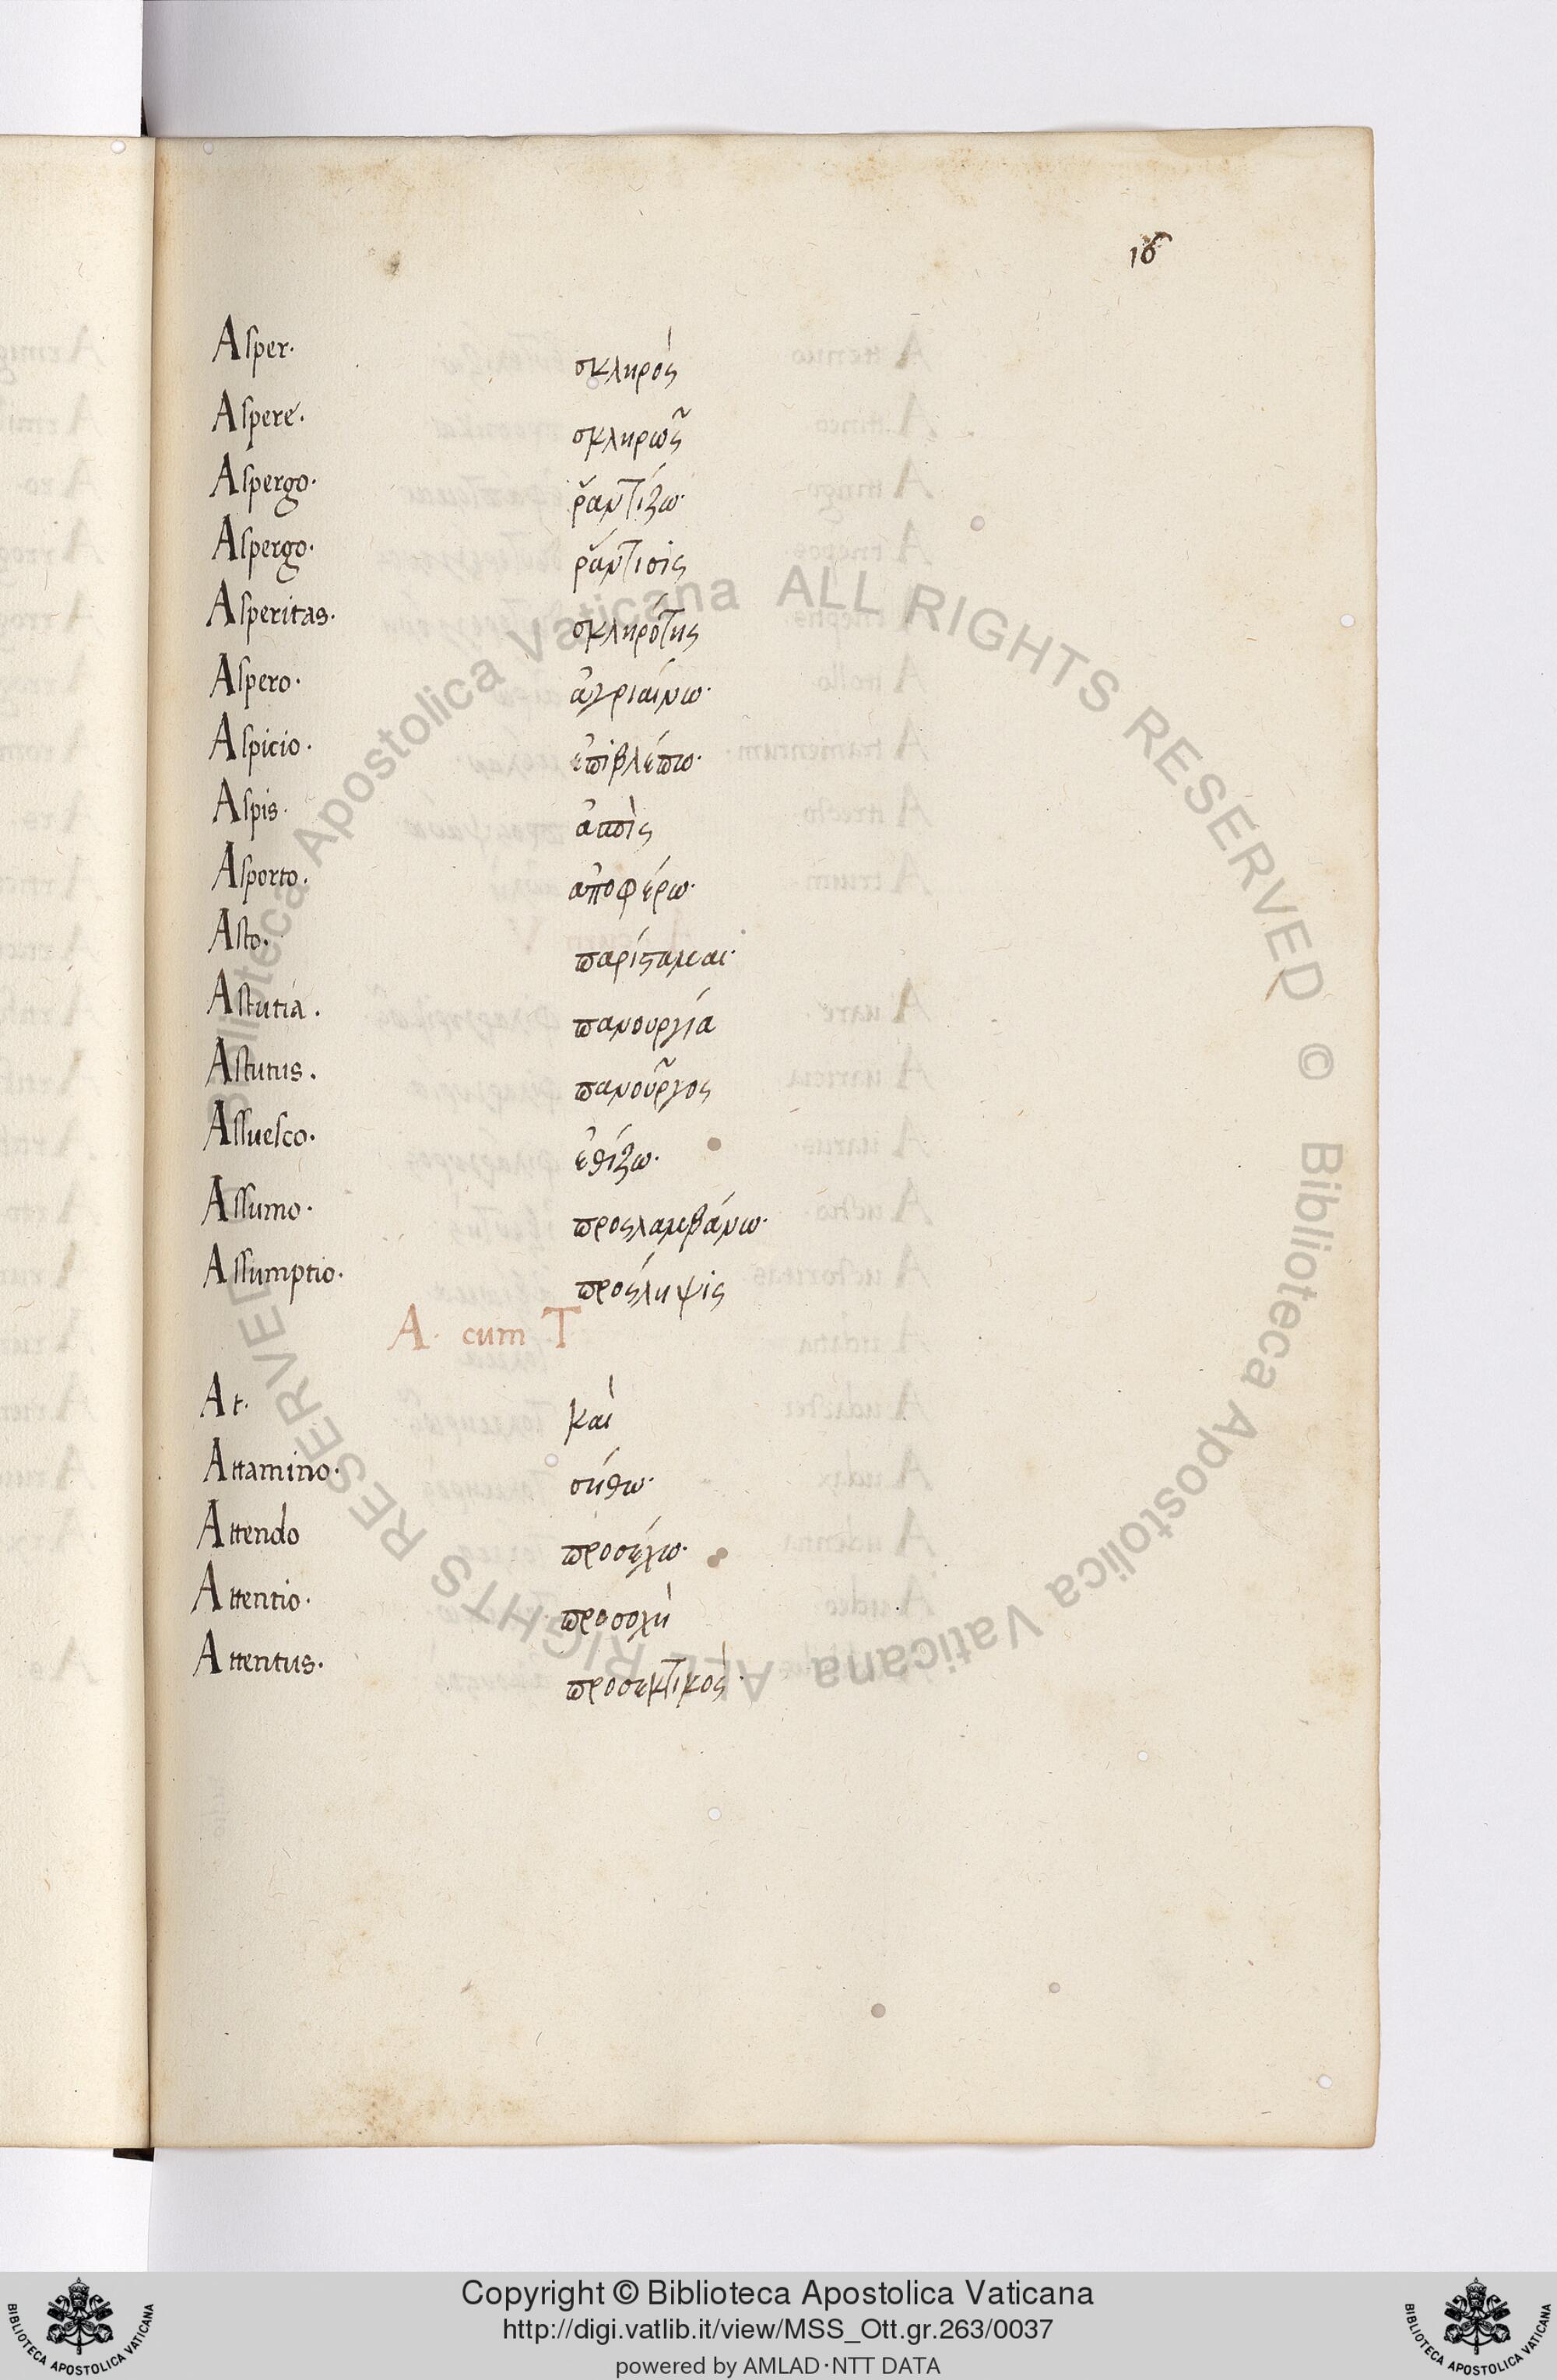 16
Asper. σκληρός
Aspere. σκληρῶς
Aspergo. ῥαντίζω·
Aspergo. ῥάντισις
Asperitas. σκληρότης
Aspero. ἀγριαίνω·
Aspicio. ἐπιβλέπω·
Aspis.
Asporto. ἀποφέρω·
Asto. παρίσταμαι·
Astutia. πανουργία
Astutus. πανοῦργος
Assuesco. ἐθίζω·
Assumo. προςλαμβάνω·
Assumptio. πρόςληψις
A. cum T
At. καὶ
Attamino. σήθω·
Attendo προσέχω·
Attentio. προσοχὴ
Attentus. προσεκτικός·
Biblioteca Apostolica Vaticana ALL RIGHTS RESERVED ©
Biblioteca Apostolica Vaticana ALL RIGHTS RESERVED ©
Copyright © Biblioteca Apostolica Vaticana
http://digi.vatlib.it/view/MSS_Ott.gr.263/0037
powered by AMLAD·NTT DATA
BIBLIOTECA APOSTOLICA VATICANA
BIBLIOTECA APOSTOLICA VATICANA